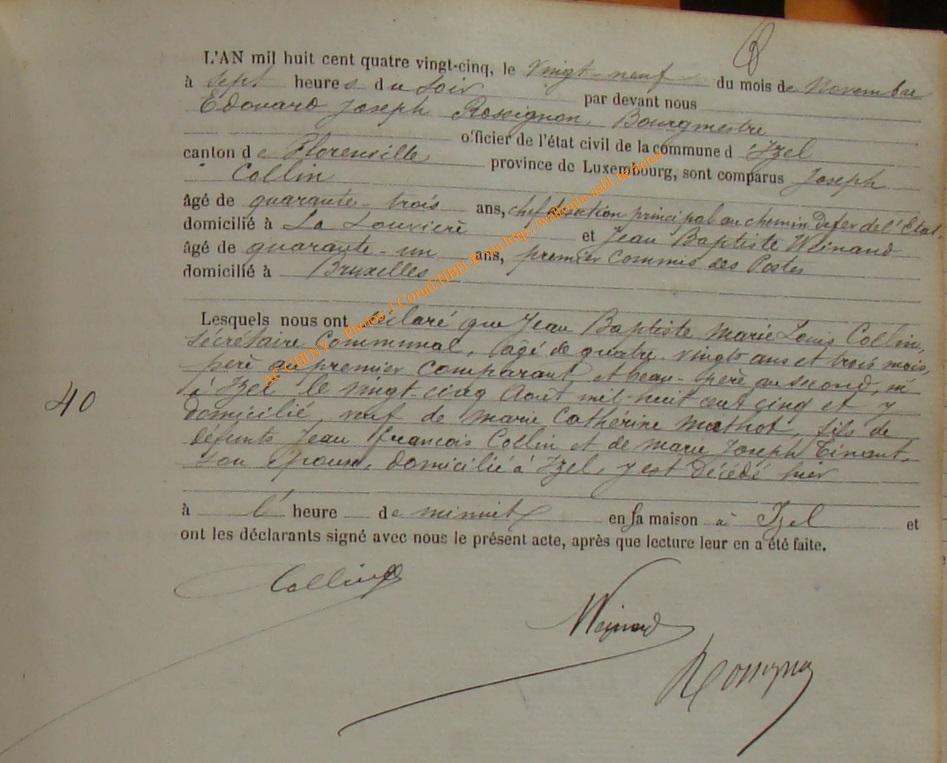 L'AN mil huit cent quatre vingt-cinq, le vingt-neuf du mois de Novembre
à sept heures du soir par devant nous
Edouard Joseph Rossignon, Bourgmestre
officier de l'état civil de la commune d'Izel
canton de Florenville province de Luxembourg, sont comparus Joseph
Collin
âgé de quarante-trois ans, chef de section principal au chemin de fer de l'Etat,
domicilié à La Louvière et Jean Baptiste Weinand
âgé de quarante-un ans, premier commis des Postes
domicilié à Bruxelles
Lesquels nous ont déclaré que Jean Baptiste Marie Louis Collin,
secrétaire communal, âgé de quatre-vingts ans et trois mois,
père du premier comparant et beau-père au second, né
à Izel le vingt-cinq Août mil huit cent cinq et y
domicilié, veuf de Marie Cathérine Mathot, fils de
40
défunts Jean François Collin et de Marie Joseph Tinant,
son épouse, domicilié à Izel, y est décédé hier
à l' heure de minuit en sa maison à Izel et
ont les déclarants signé avec nous le présent acte, après que lecture leur en a été faite.
Collin
Weinand
Rossignon